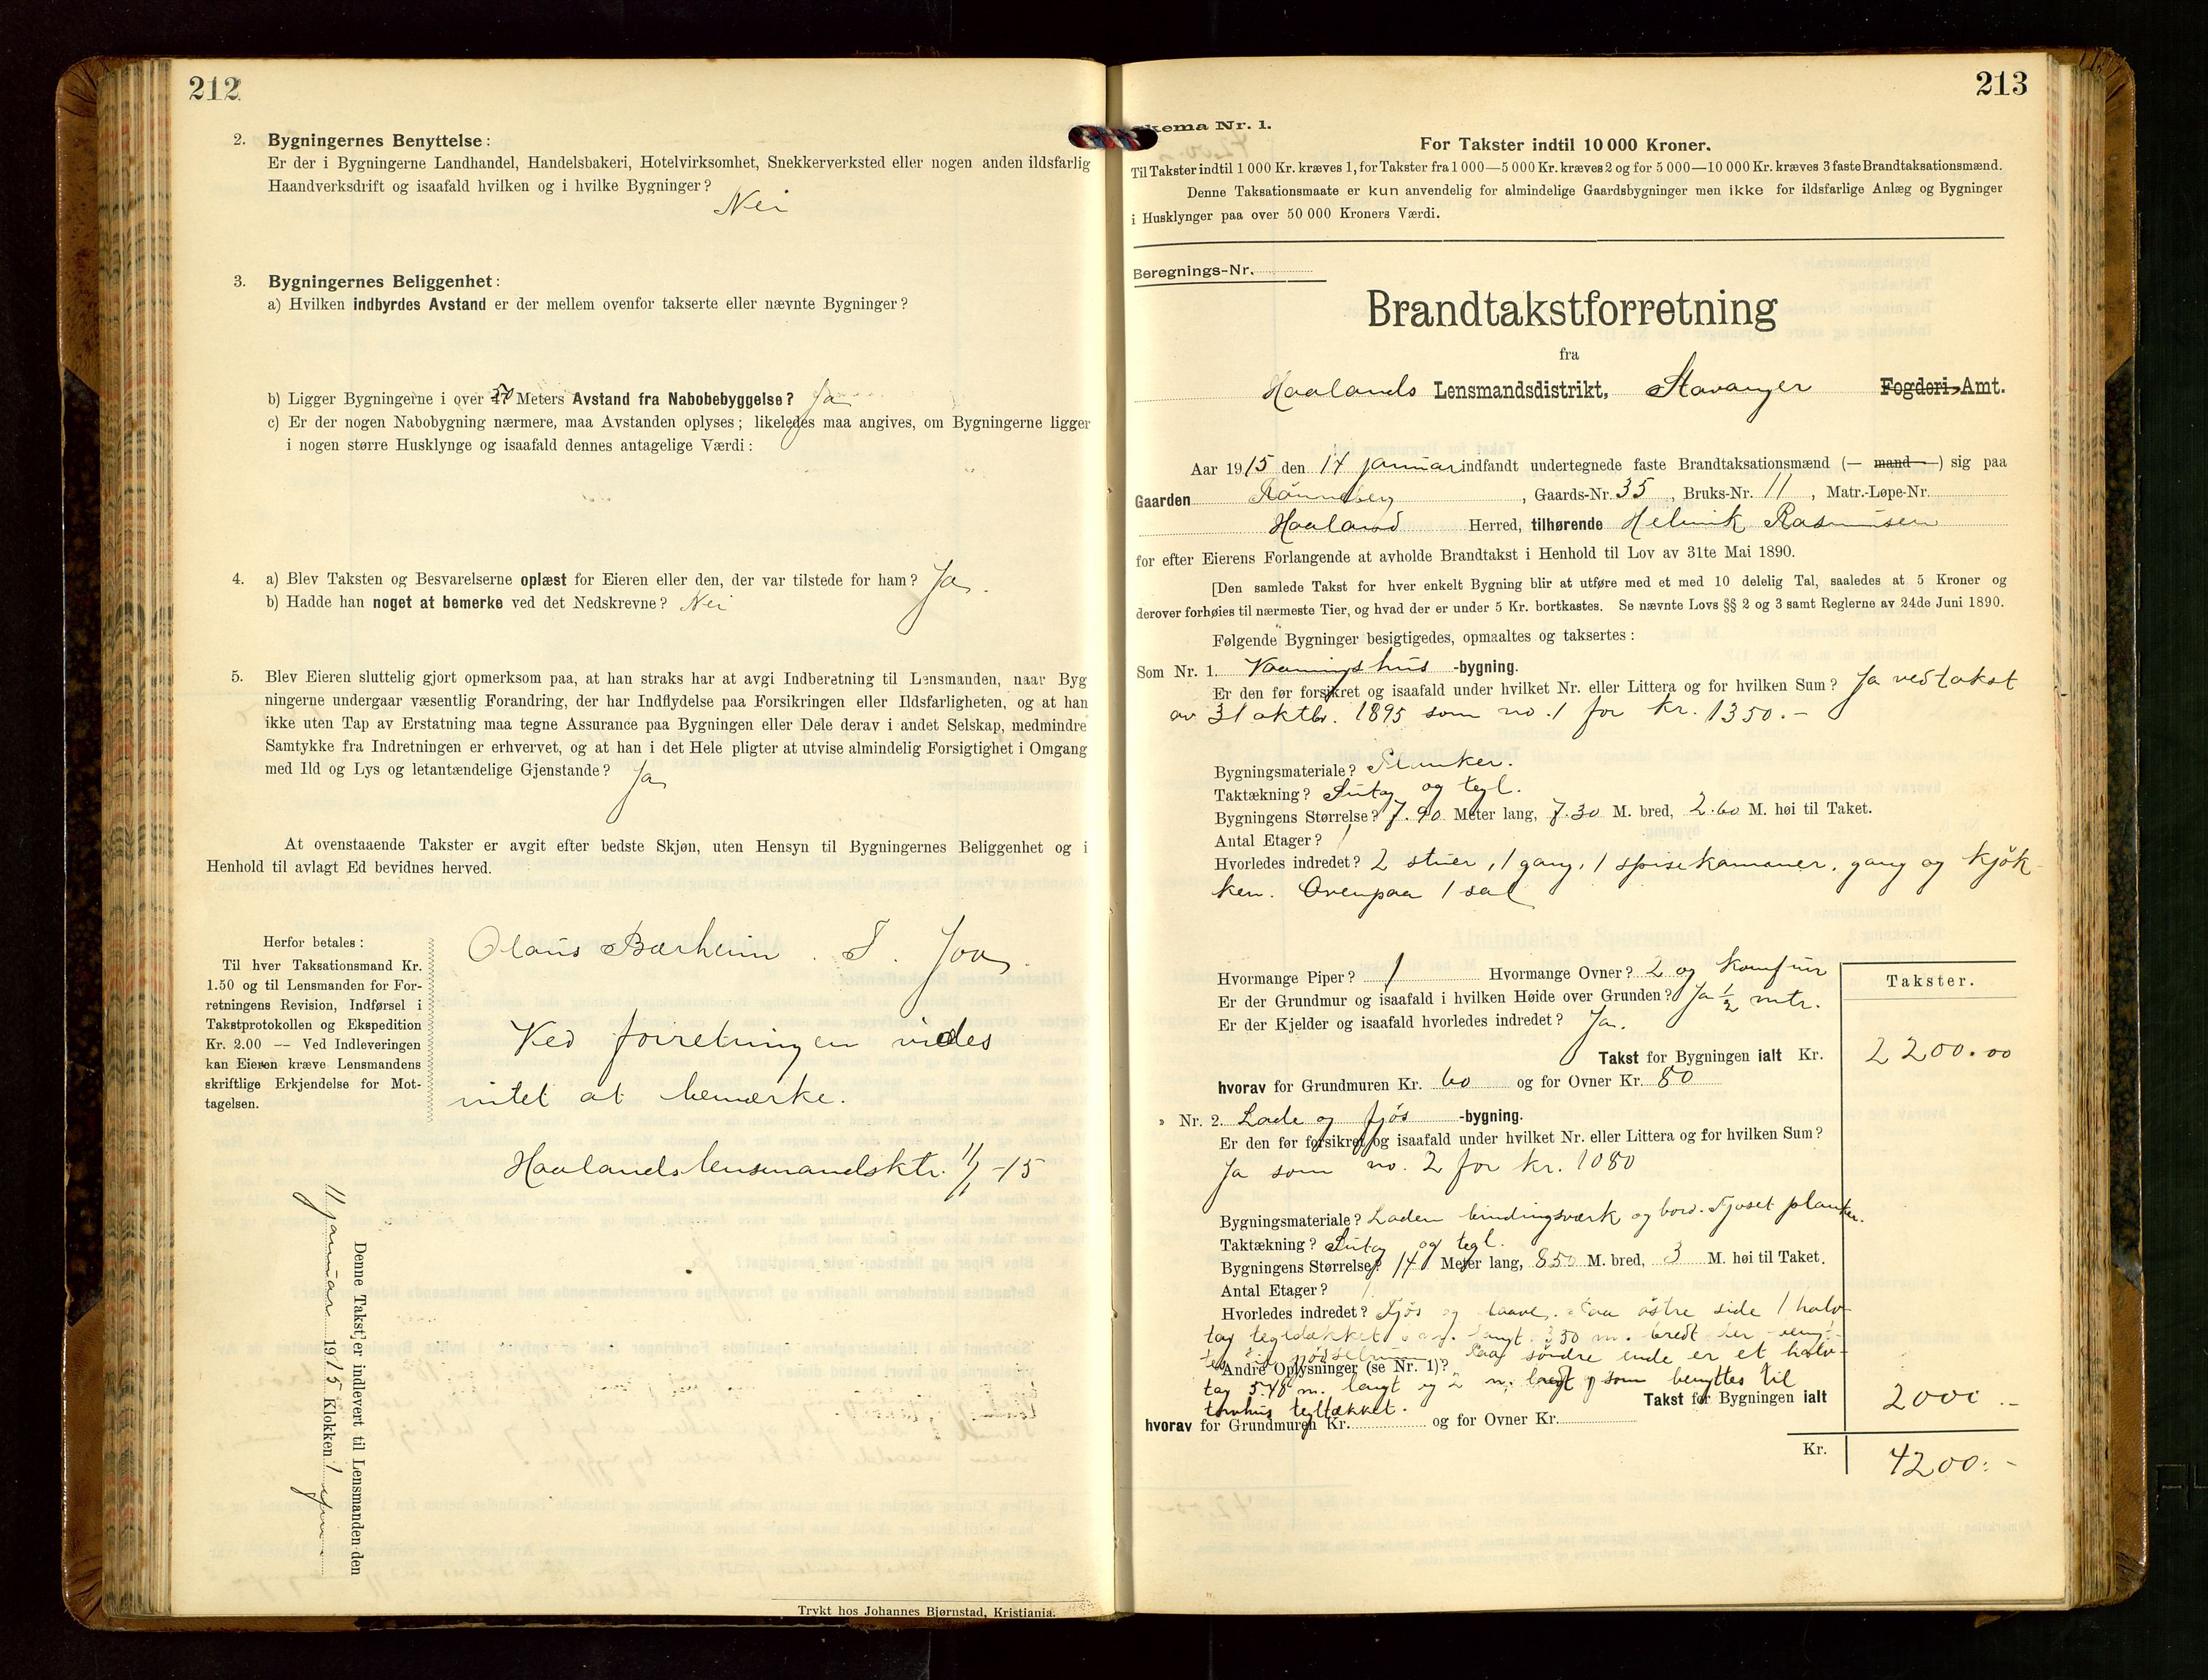 212
2. Bygningernes Benyttelse:
Er der i Bygningerne Landhandel, Handelsbakeri, Hotelvirksomhet, Snekkerverksted eller nogen anden ildsfarlig
Haandverksdrift og isaafald hvilken og i hvilke Bygninger?
Nei
3. Bygningernes Beliggenhet:
a) Hvilken indbyrdes Avstand er der mellem ovenfor takserte eller nævnte Bygninger?
b) Ligger Bygningerne i over 50 Meters Avstand fra Nabobebyggelse? Ja
c) Er der nogen Nabobygning nærmere, maa Avstanden oplyses; likeledes maa angives, om Bygningerne ligger
i nogen større Husklynge og isaafald dennes antagelige Værdi:
4. a) Blev Taksten og Besvarelserne oplæst for Eieren eller den, der var tilstede for ham? Ja.
b) Hadde han noget at bemerke ved det Nedskrevne? Nei
5. Blev Eieren sluttelig gjort opmerksom paa, at han straks har at avgi Indberetning til Lensmanden, naar Byg
ningerne undergaar væsentlig Forandring, der har Indflydelse paa Forsikringen eller Ildsfarligheten, og at han
ikke uten Tap av Erstatning maa tegne Assurance paa Bygningen eller Dele derav i andet Selskap, medmindre
Samtykke fra Indretningen er erhvervet, og at han i det Hele pligter at utvise almindelig Forsigtighet i Omgang
med Ild og Lys og letantændelige Gjenstande? Ja
At ovenstaaende Takster er avgit efter bedste Skjøn, uten Hensyn til Bygningernes Beliggenhet og i
Henhold til avlagt Ed bevidnes herved.
Olaus Bærheim. T. Joa.
Herfor betales:
Til hver Taksationsmand Kr.
1.50 og til Lensmanden for For-
retningens Revision, Indførsel i
Takstprotokollen og Ekspedition
Kr. 2.00 — Ved Indleveringen
kan Eieren kræve Lensmandens
skriftlige Erkjendelse for Mot-
tagelsen.
Ved forretningen vides
intet at bemærke.
Haalands lensmandsktr. 11/1-15
Denne Takst er indlevert til Lensmanden den
11 januar 1915 Klokken 1
Trykt hos Johannes Bjørnstad, Kristiania.
213
kema Nr. 1.
For Takster indtil 10 000 Kroner.
Til Takster indtil 1 000 Kr. kræves 1, for Takster fra 1 000—5 000 Kr. kræves 2 og for 5 000—10 000 Kr. kræves 3 faste Brandtaksationsmænd.
Denne Taksationsmaate er kun anvendelig for almindelige Gaardsbygninger men ikke for ildsfarlige Anlæg og Bygninger
i Husklynger paa over 50 000 Kroners Værdi.
Beregnings-Nr.
Brandtakstforretning
fra
Haalands Lensmandsdistrikt, Stavanger Fogderi, Amt.
Aar 1915 den 14 januar indfandt undertegnede faste Brandtaksationsmænd (— mand —) sig paa
Gaarden Rönneberg, Gaards-Nr. 35, Bruks-Nr. 11, Matr.-Løpe-Nr.
Haaland Herred, tilhørende Helmik Rasmussen
for efter Eierens Forlangende at avholde Brandtakst i Henhold til Lov av 31te Mai 1890.
[Den samlede Takst for hver enkelt Bygning blir at utføre med et med 10 delelig Tal, saaledes at 5 Kroner og
derover forhøies til nærmeste Tier, og hvad der er under 5 Kr. bortkastes. Se nævnte Lovs §§ 2 og 3 samt Reglerne av 24de Juni 1890.
Følgende Bygninger besigtigedes, opmaaltes og taksertes:
Som Nr. 1. Vaaningshus -bygning.
Er den før forsikret og isaafald under hvilket Nr. eller Littera og for hvilken Sum? Ja ved takst
av 31 oktbr. 1895 som no. 1 for kr. 1350.-
Bygningsmateriale? Planker.
Taktækning? Sutag og tegl.
Bygningens Størrelse? 7.90 Meter lang, 7.30 M. bred, 2.60 M. høi til Taket.
Antal Etager? 1
Hvorledes indredet? 2 stuer, 1 gang, 1 spisekammer, gang og kjök-
ken. Ovenpaa 1 sal
Hvormange Piper? 1 Hvormange Ovner? 2 og komfur
Er der Grundmur og isaafald i hvilken Høide over Grunden? Ja ½ mtr.
Er der Kjelder og isaafald hvorledes indredet? Ja.
Takster.
Takst for Bygningen ialt Kr. 2200.00
hvorav for Grundmuren Kr. 60 og for Ovner Kr. 80
» Nr. 2. Lade og fjös -bygning.
Er den før forsikret og isaafald under hvilket Nr. eller Littera og for hvilken Sum?
Ja som no. 2 for kr. 1080
Bygningsmateriale? Laden bindingsværk og bord. Fjøset planker.
Taktækning? Sutag og tegl.
Bygningens Størrelse? 14 Meter lang, 850 M. bred, 3 M. høi til Taket.
Antal Etager? 1
Hvorledes indredet? Fjös og laave. Paa östre side 1 halv-
tag tegldækket langt. 350 m. bredt der
Paa söndre ende er et halv-
Andre Oplysninger (se Nr. 1)?
tag 5.48 m. langt og 2 m. som benyttes til
torvhus tegltækket.
Takst for Bygningen ialt 2000.-
hvorav for Grundmuren Kr. og for Ovner Kr.
Kr. 4200:-